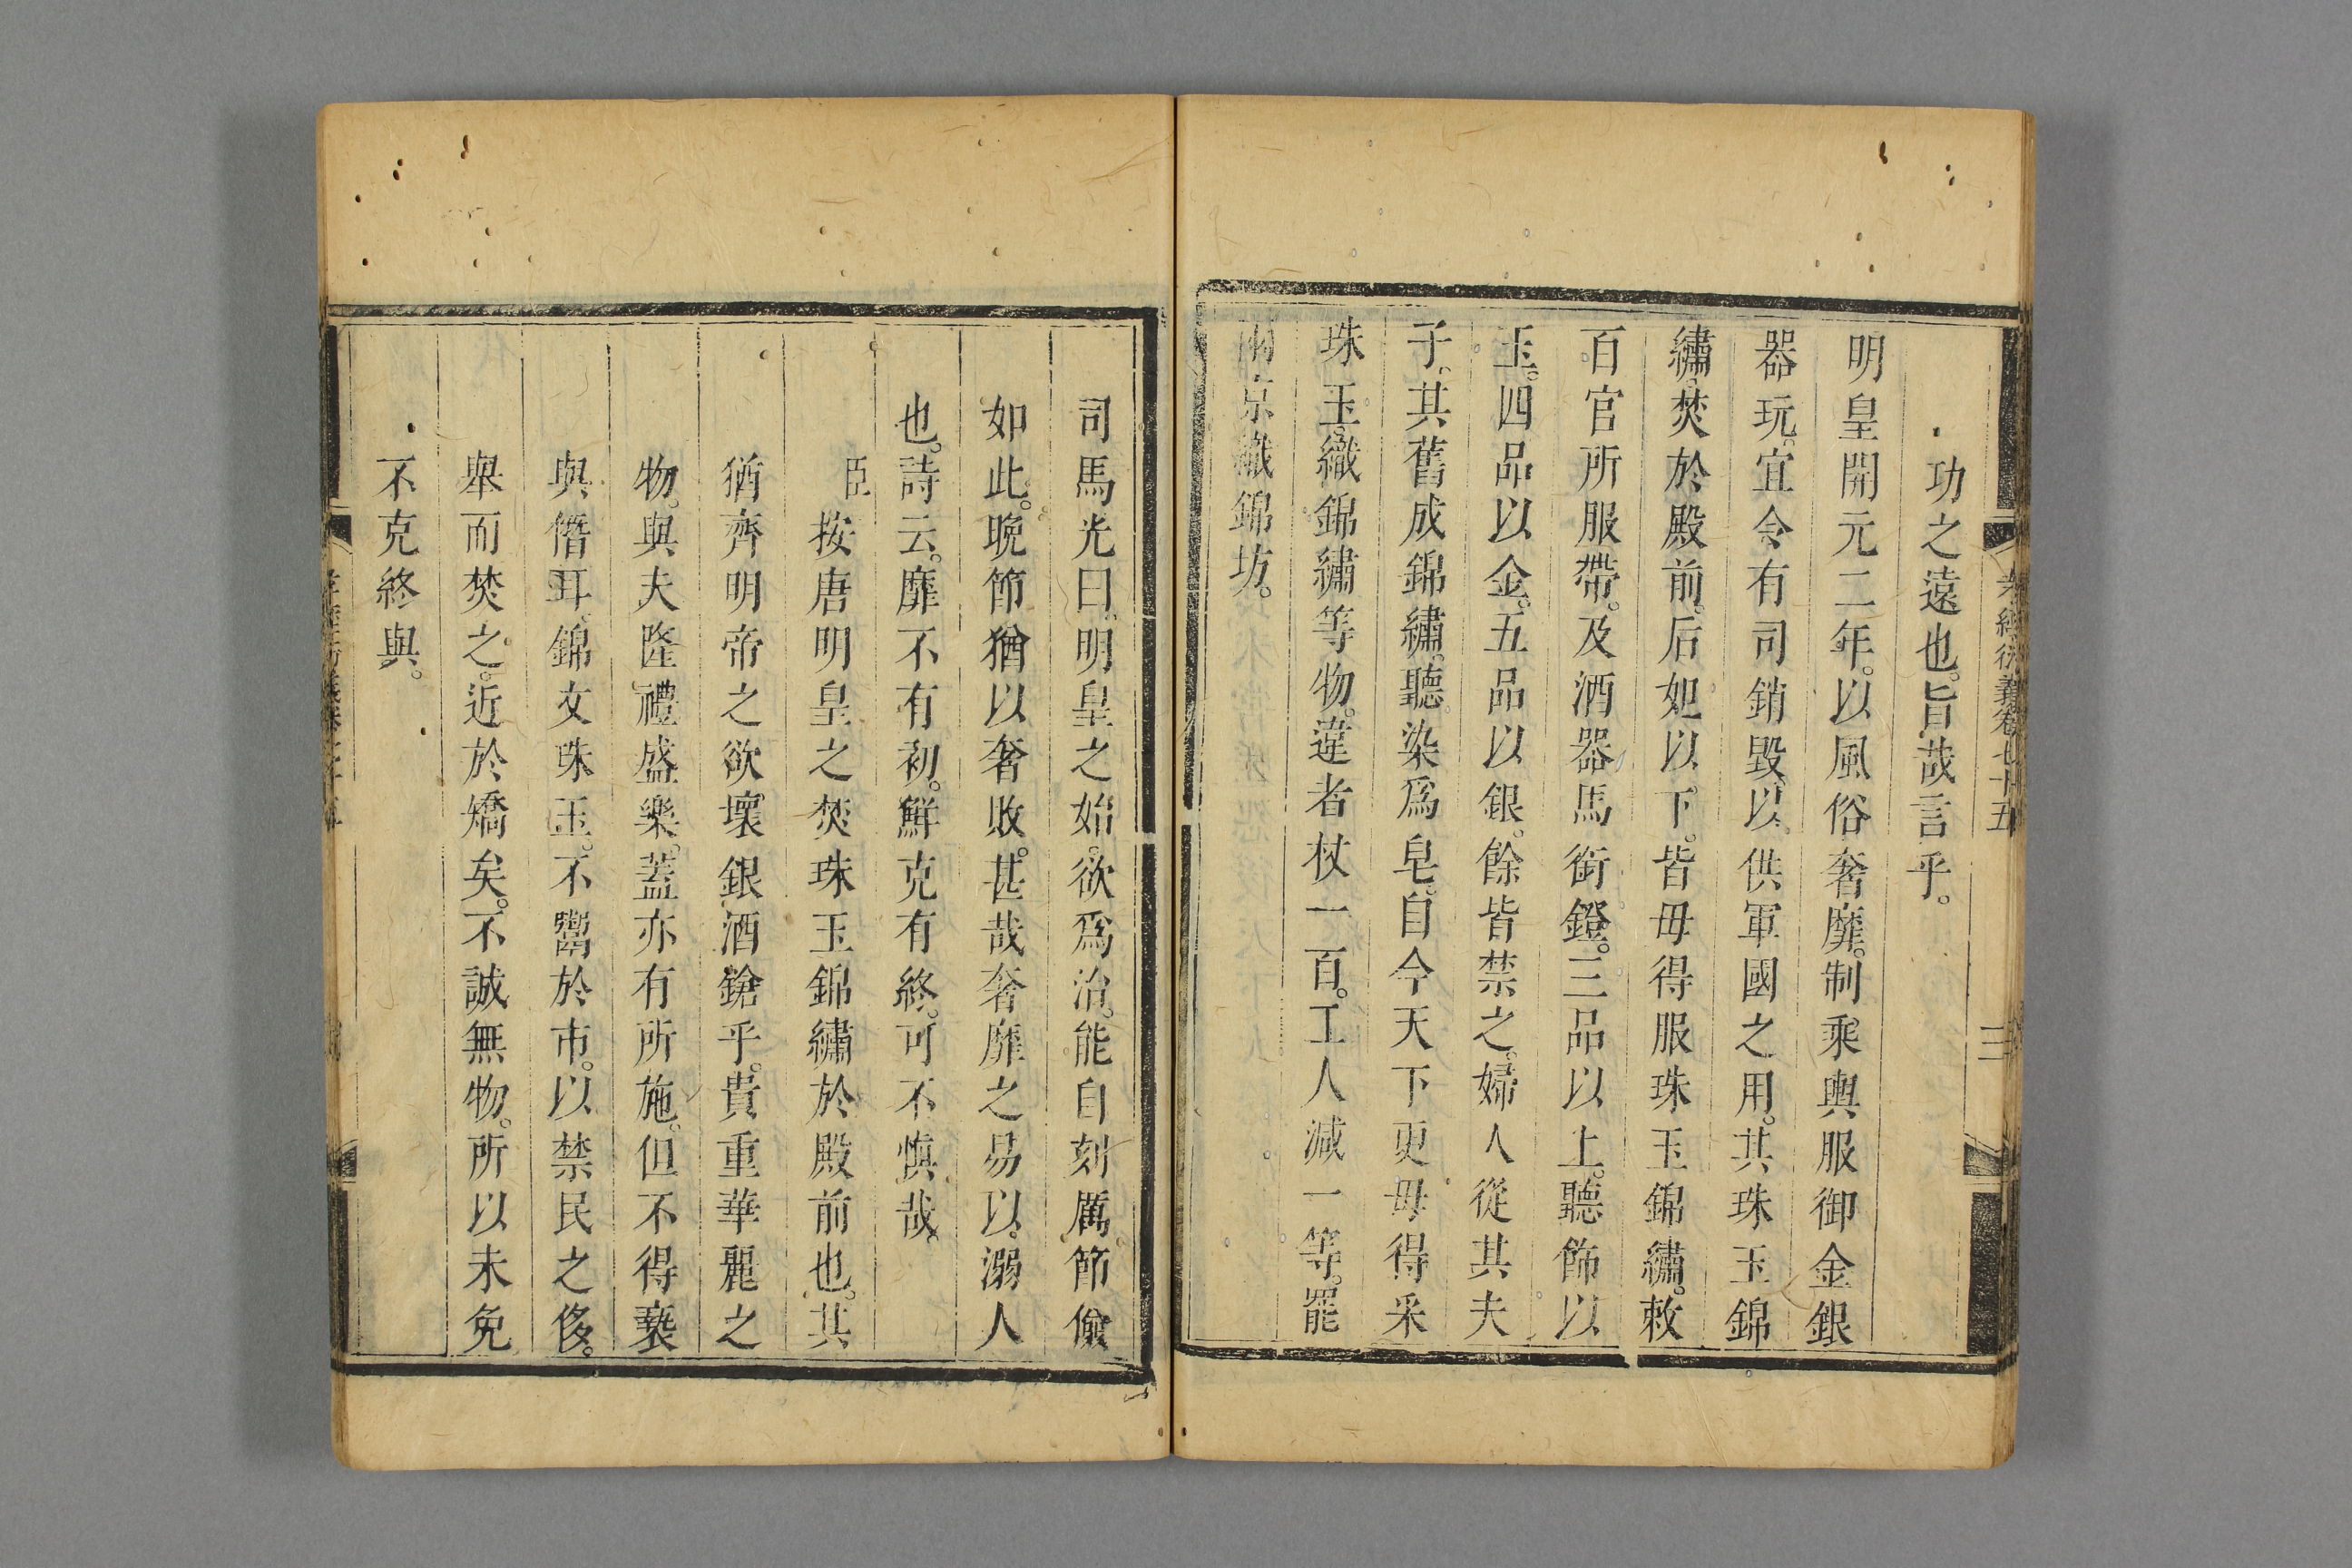 孝經衍義卷七十五
三
功之遠也。旨哉言乎。
明皇開元二年。以風俗奢靡。制乘輿服御金銀
器玩。宜令有司銷毀。以供軍國之用。其珠玉錦
繡。焚於殿前。后妃以下。皆毋得服珠玉錦繡。敕
百官所服帶。及酒器馬銜鐙。三品以上。聽飾以
玉。四品以金。五品以銀。餘皆禁之。婦人從其夫
子。其舊成錦繡。聽染爲皂。自今天下更毋得采
珠玉。織錦繡等物。違者杖一百。工人減一等。罷
兩京織錦坊。
司馬光曰。明皇之始。欲爲治。能自刻厲節儉
如此。晚節猶以奢敗。甚哉奢靡之易以溺人
也。詩云。靡不有初。鮮克有終。可不慎哉。
臣按唐明皇之焚珠玉錦繡於殿前也。其
猶齊明帝之欲壞銀酒鎗乎。貴重華麗之
物。與夫隆禮盛樂。蓋亦有所施。但不得褻
與僭耳。錦文珠玉。不鬻於市。以禁民之侈。
舉而焚之。近於矯矣。不誠無物。所以未免
不克終與。